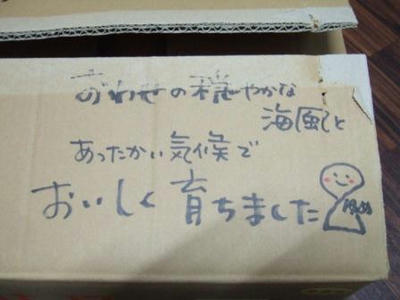 おわせの穏やかな
海風と
あったかい気候で
おいしく育ちました